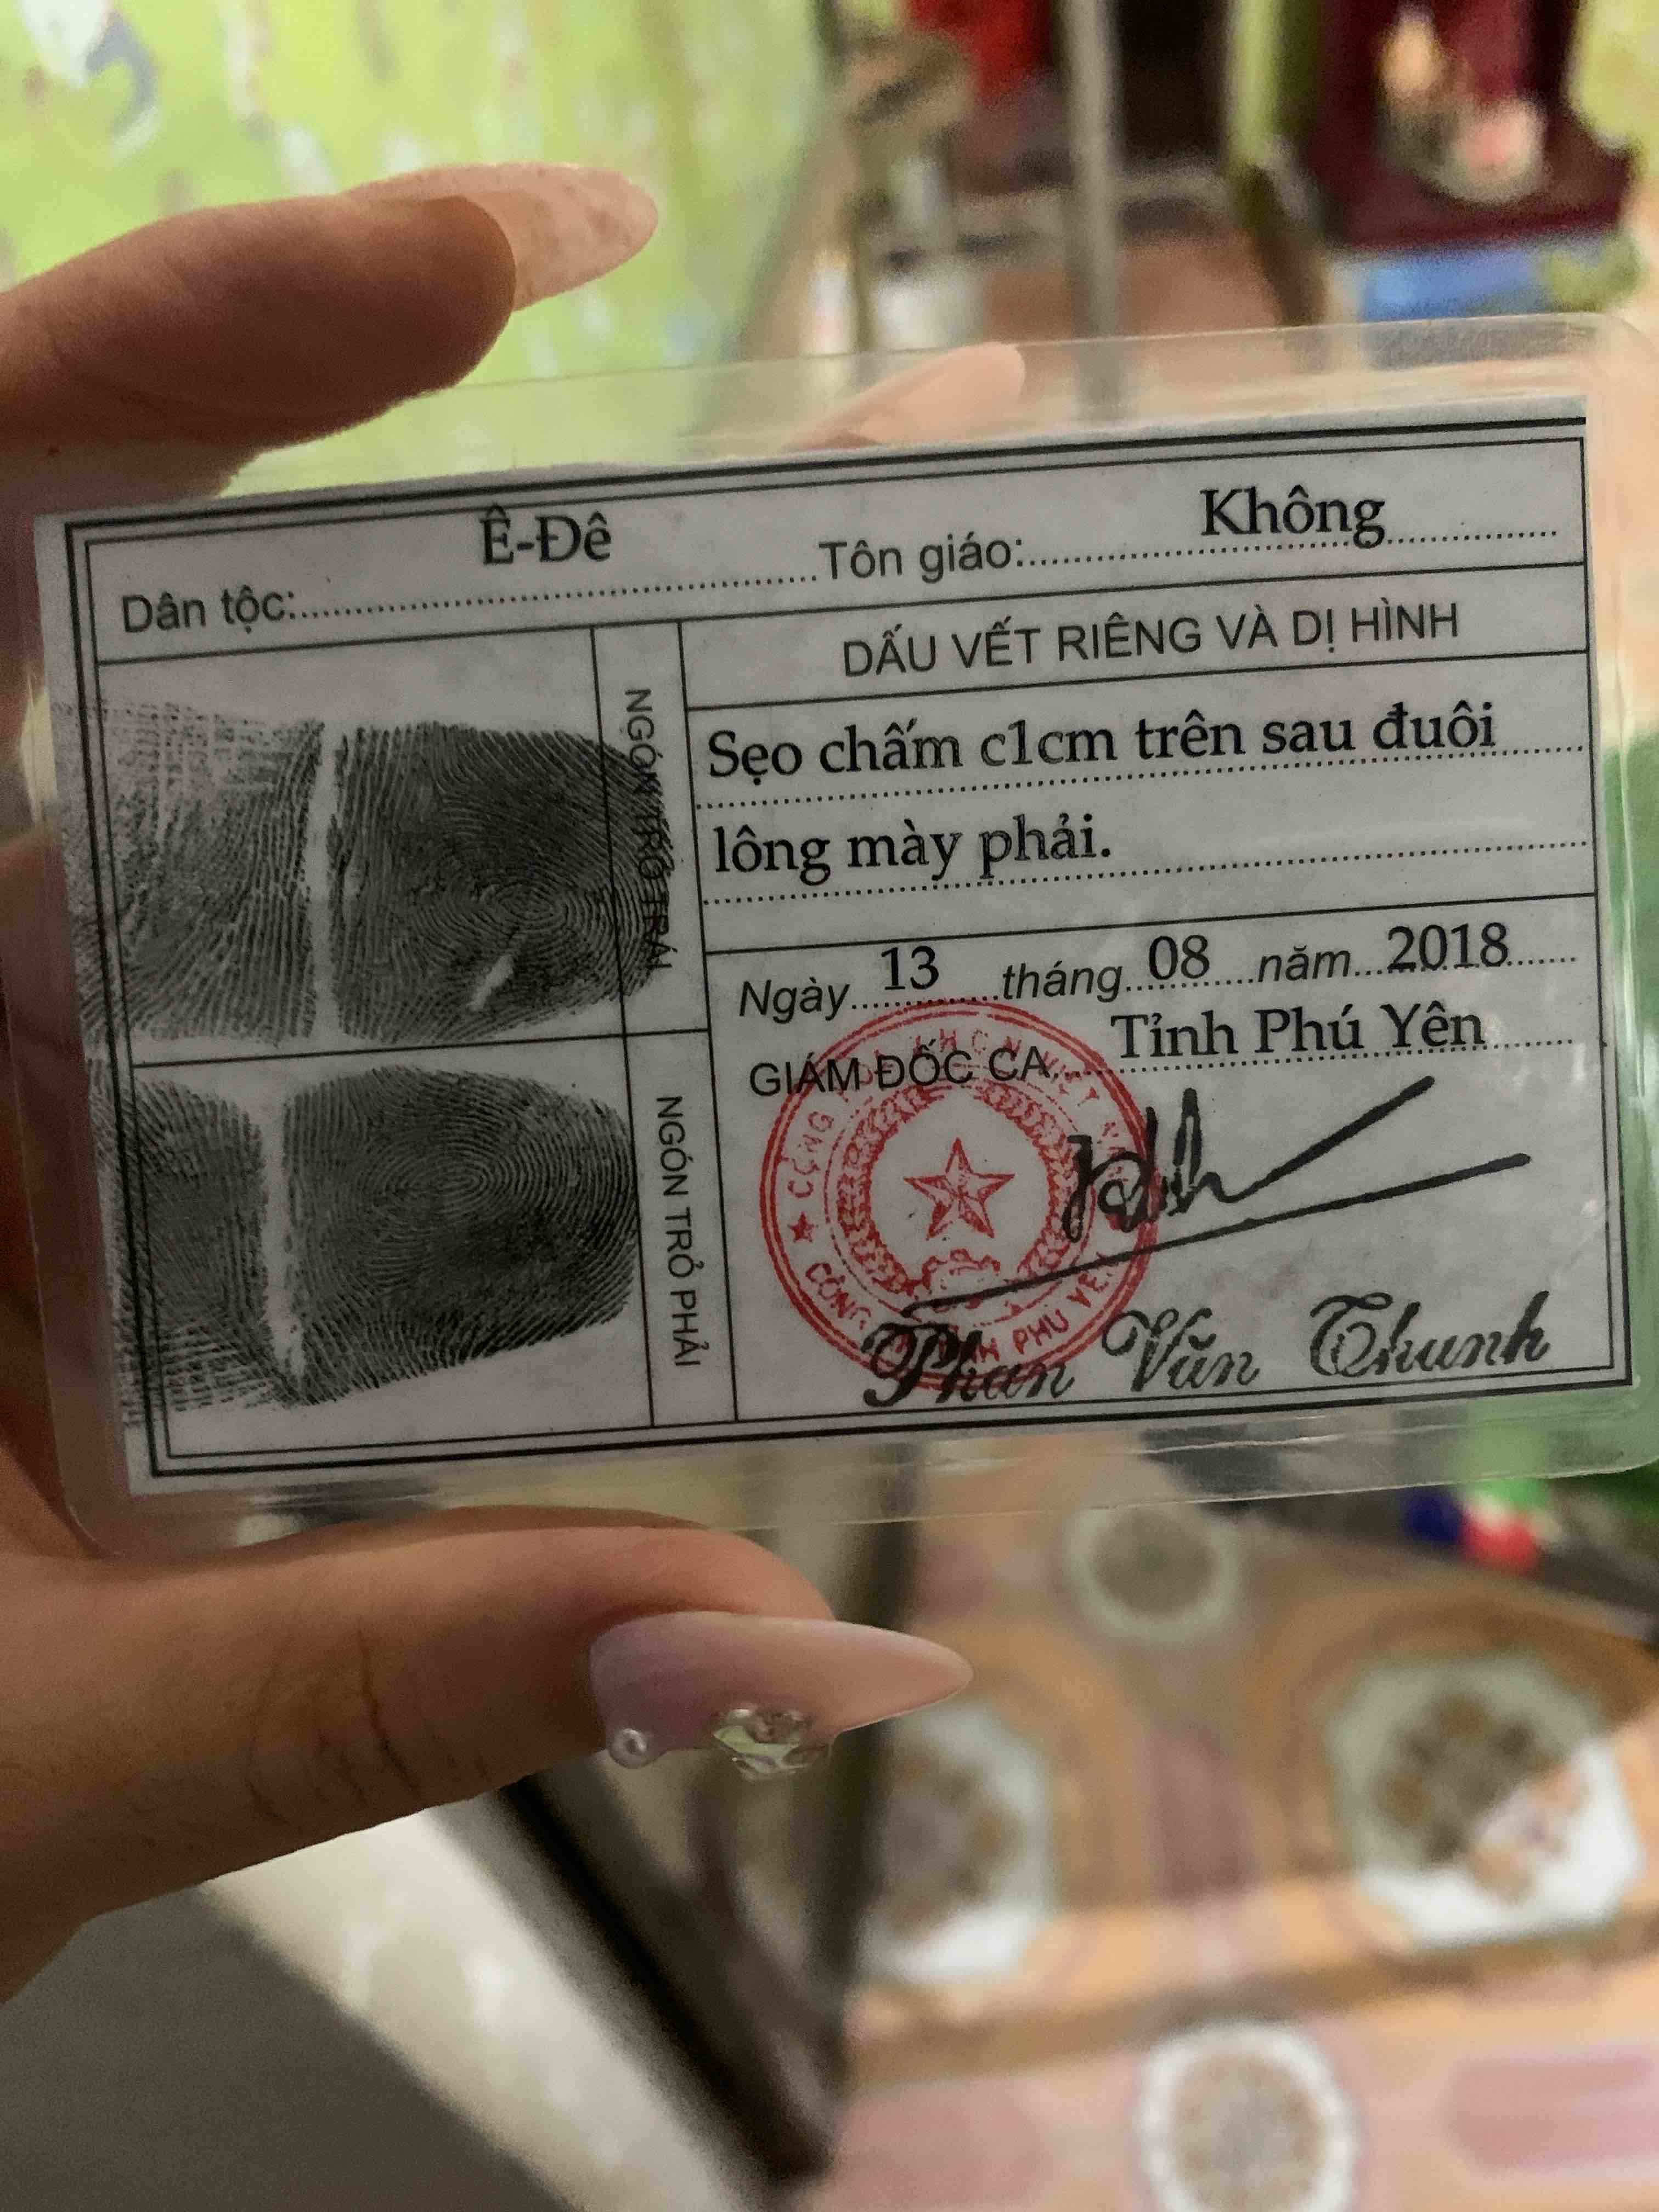 Dân tộc: Ê-Đê Tôn giáo: Không
NGÓN TRỎ TRÁI
DẤU VẾT RIÊNG VÀ DỊ HÌNH
Sẹo chấm c1cm trên sau đuôi
lông mày phải.
Ngày 13 tháng 08 năm 2018
GIÁM ĐỐC CA Tỉnh Phú Yên
NGÓN TRỎ PHẢI
Phan Văn Thanh